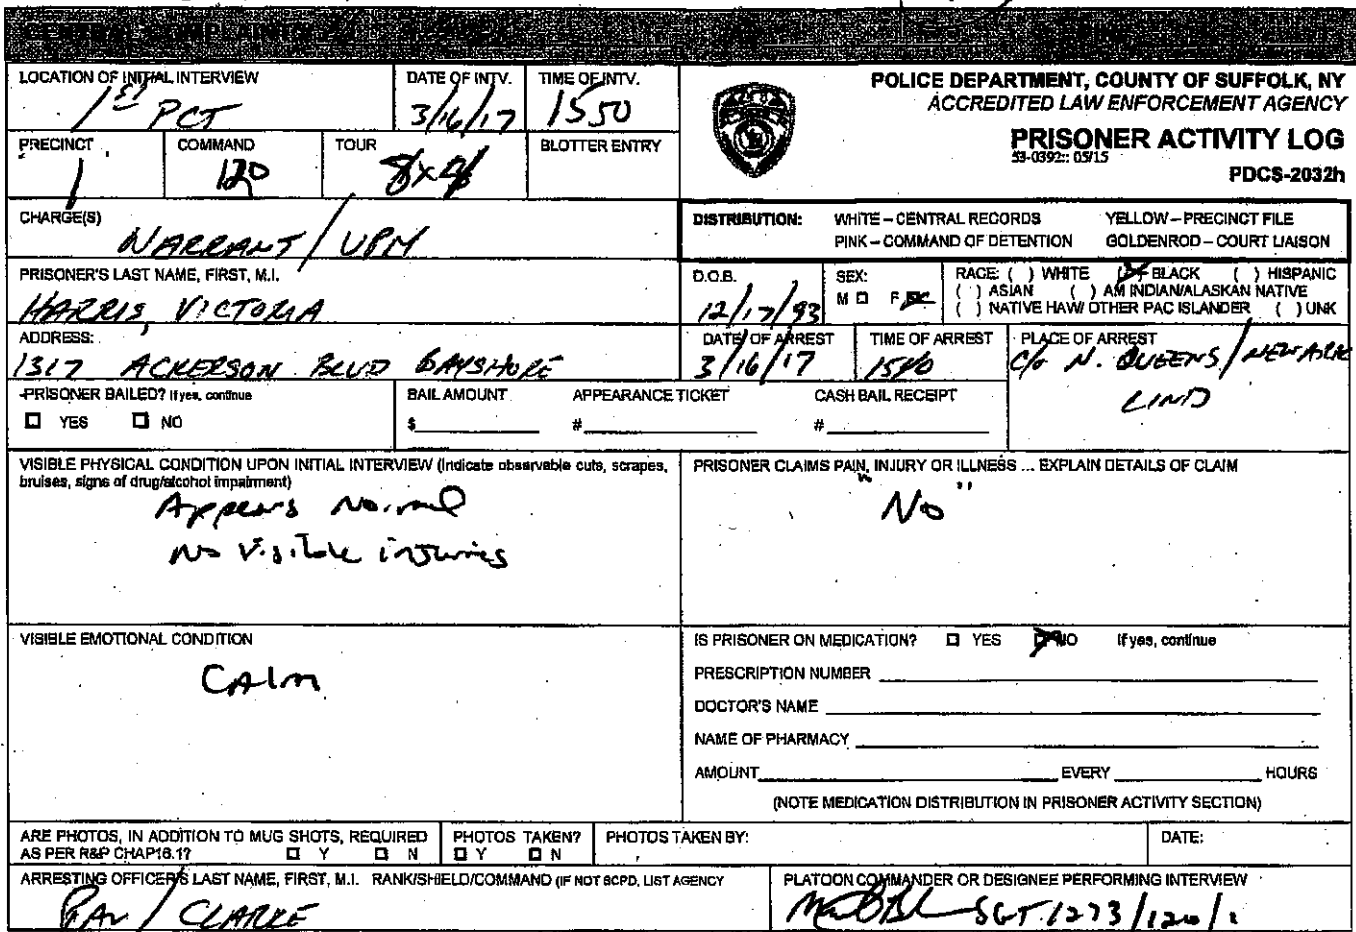 CENTRAL COMPLAINT
LOCATION OF INITIAL INTERVIEW
1st PCT
DATE OF INTV.
3/16/17
TIME OF INTV.
1550
POLICE DEPARTMENT, COUNTY OF SUFFOLK, NY
ACCREDITED LAW ENFORCEMENT AGENCY
PRISONER ACTIVITY LOG
53-0392:: 05/15
PDCS-2032h
PRECINCT
1
COMMAND
120
TOUR
8x4
BLOTTER ENTRY
CHARGE(S)
WARRANT / UPM
DISTRIBUTION: WHITE – CENTRAL RECORDS YELLOW – PRECINCT FILE
PINK – COMMAND OF DETENTION GOLDENROD – COURT LIAISON
PRISONER'S LAST NAME, FIRST, M.I.
HARRIS, VICTORIA
D.O.B.
12/17/93
SEX:
M F
RACE: ( ) WHITE ( ) BLACK ( ) HISPANIC
( ) ASIAN ( ) AM INDIAN/ALASKAN NATIVE
( ) NATIVE HAW/ OTHER PAC ISLANDER ( ) UNK
ADDRESS:
1317 ACKERSON BLVD BAYSHORE
DATE OF ARREST
3/16/17
TIME OF ARREST
1540
PLACE OF ARREST
C/O N. QUEENS / NEWARK
LIND
PRISONER BAILED? If yes, continue
YES NO
BAIL AMOUNT
$
APPEARANCE TICKET
#
CASH BAIL RECEIPT
#
VISIBLE PHYSICAL CONDITION UPON INITIAL INTERVIEW (Indicate observable cuts, scrapes,
bruises, signs of drug/alcohol impairment)
Appears Normal
No Visible injuries
PRISONER CLAIMS PAIN, INJURY OR ILLNESS ... EXPLAIN DETAILS OF CLAIM
"No"
VISIBLE EMOTIONAL CONDITION
CAlm
IS PRISONER ON MEDICATION? YES NO If yes, continue
PRESCRIPTION NUMBER
DOCTOR'S NAME
NAME OF PHARMACY
AMOUNT EVERY HOURS
(NOTE MEDICATION DISTRIBUTION IN PRISONER ACTIVITY SECTION)
ARE PHOTOS, IN ADDITION TO MUG SHOTS, REQUIRED
AS PER R&P CHAP16.1? Y N
PHOTOS TAKEN?
Y N
PHOTOS TAKEN BY:
DATE:
ARRESTING OFFICER'S LAST NAME, FIRST, M.I. RANK/SHIELD/COMMAND (IF NOT SCPD, LIST AGENCY
/ CLARKE
PLATOON COMMANDER OR DESIGNEE PERFORMING INTERVIEW
SGT. 1273/120/1